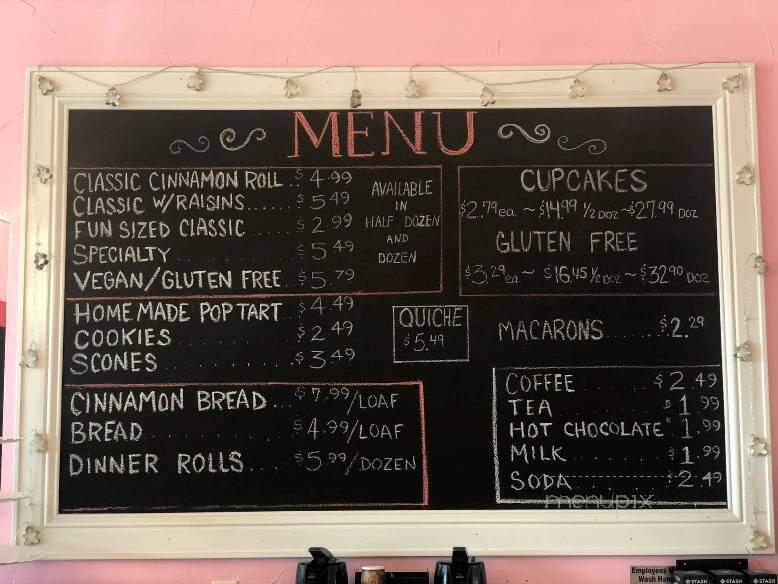 MENU
CLASSIC CINNAMON ROLL .. $4.99
CLASSIC W/RAISINS...... $5.49
FUN SIZED CLASSIC $2.99
SPECIALTY ........ $5.49
VEGAN/GLUTEN FREE $5.79
AVAILABLE
IN
HALF DOZEN
AND
DOZEN
CUPCAKES
$2.79ea. ~ $14.99 ½ DOZ ~ $27.99 DOZ
GLUTEN FREE
$3.29ea ~ $16.45 ½ DOZ ~ $32.90 DOZ
HOME MADE POP TART $4.49
COOKIES ........ $2.49
SCONES ........ $3.49
QUICHE
$5.49
MACARONS ..... $2.29
CINNAMON BREAD... $7.99/LOAF
BREAD.......... $4.99/LOAF
DINNER ROLLS.... $5.99/DOZEN
COFFEE ...... $2.49
TEA ........ $1.99
HOT CHOCOLATE $1.99
MILK ....... $1.99
SODA ....... $2.49
menupix
Employees
Wash Han
STASH STASH STASH